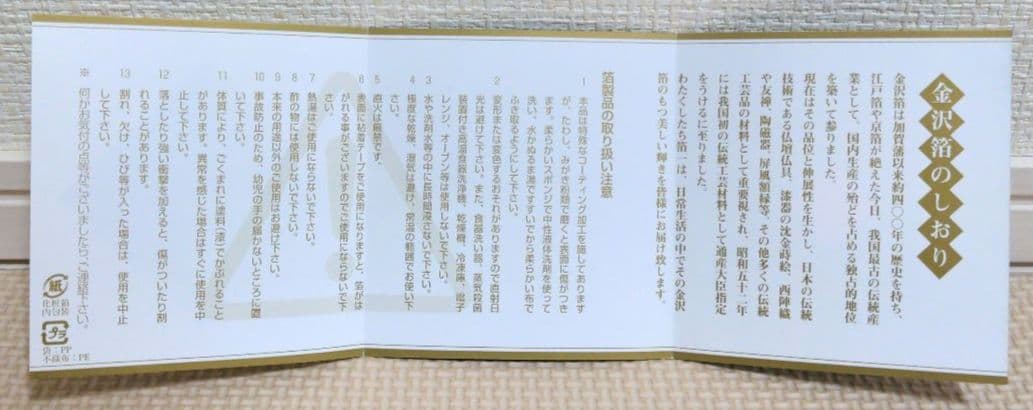 金沢箔のしおり
金沢箔は加賀藩以来約四〇〇年の歴史を持ち、
江戸箔や京箔が絶えた今日、我国最古の伝統産
業として、国内生産の殆どを占める独占的地位
を築いて参りました。
現在はその品位と伸展性を生かし、日本の伝統
技術である仏壇仏具、漆器の沈金蒔絵、西陣織
や友禅、陶磁器、屏風額縁等、その他多くの伝統
工芸品の材料として重要視され、昭和五十二年
には我国初の伝統工芸材料として通産大臣指定
をうけるに至りました。
わたくしたち箔一は、日常生活の中でその金沢
箔のもつ美しい輝きを皆様にお届け致します。
箔製品の取り扱い注意
1 本品は特殊なコーティング加工を施してあります
が、たわし、みがき粉類で磨くと表面に傷がつき
ます。柔らかいスポンジで中性液体洗剤を使って
洗い、水かぬるま湯ですすいでから柔らかい布で
ふき取るようにして下さい。
2 変形または変色するおそれがありますので直射日
光は避けて下さい。また、食器洗い器、蒸気殺菌
装置付き高温食器洗浄機、乾燥機、冷凍庫、電子
レンジ、オーブン等は使用しないで下さい。
3 水や洗剤水等の中に長時間浸さないで下さい。
4 極度な乾燥、湿気は避け、常温の範囲でお使い下
さい。
5 直火は厳禁です。
6 表面に粘着テープをご使用になりますと、箔がは
がれる事がございますのでご使用にならないで下
さい。
7 熱湯はご使用にならないで下さい。
8 酢の物には使用しないで下さい。
9 本来の用途以外のご使用はお避け下さい。
10 事故防止のため、幼児の手の届かないところに置
いて下さい。
11 体質により、ごくまれに塗料（漆）でかぶれること
があります。異常を感じた場合はすぐに使用を中
止して下さい。
12 落としたり強い衝撃を加えると、傷がついたり割
れることがあります。
13 割れ、欠け、ひび等が入った場合は、使用を中止
して下さい。
※ 何かお気付の点等がございましたらご連絡下さい。
紙
化粧箱
内包装
プラ
袋：PP
不織布：PE